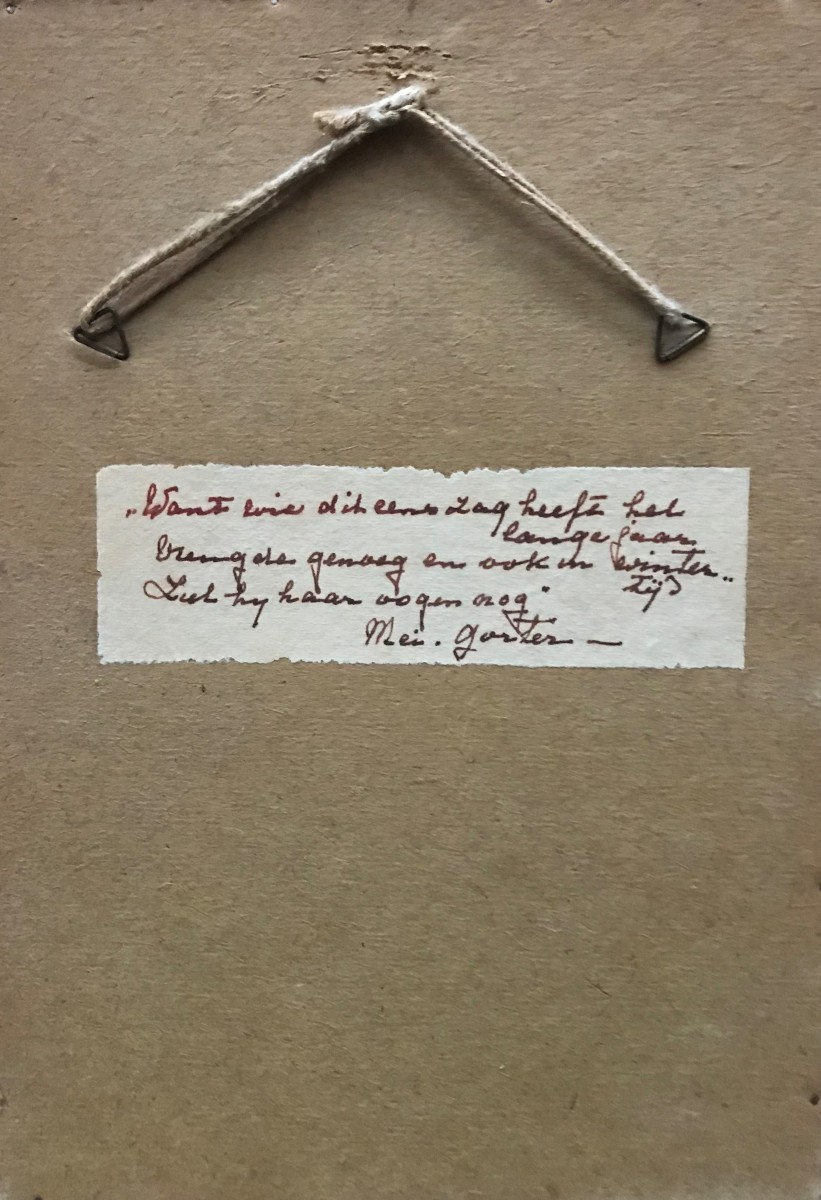 „Want wie dit eens zag heeft het
lange jaar
Vreugde genoeg en ook in winter„
tijd
Ziet hy haar oogen nog"
Mei. Gorter —